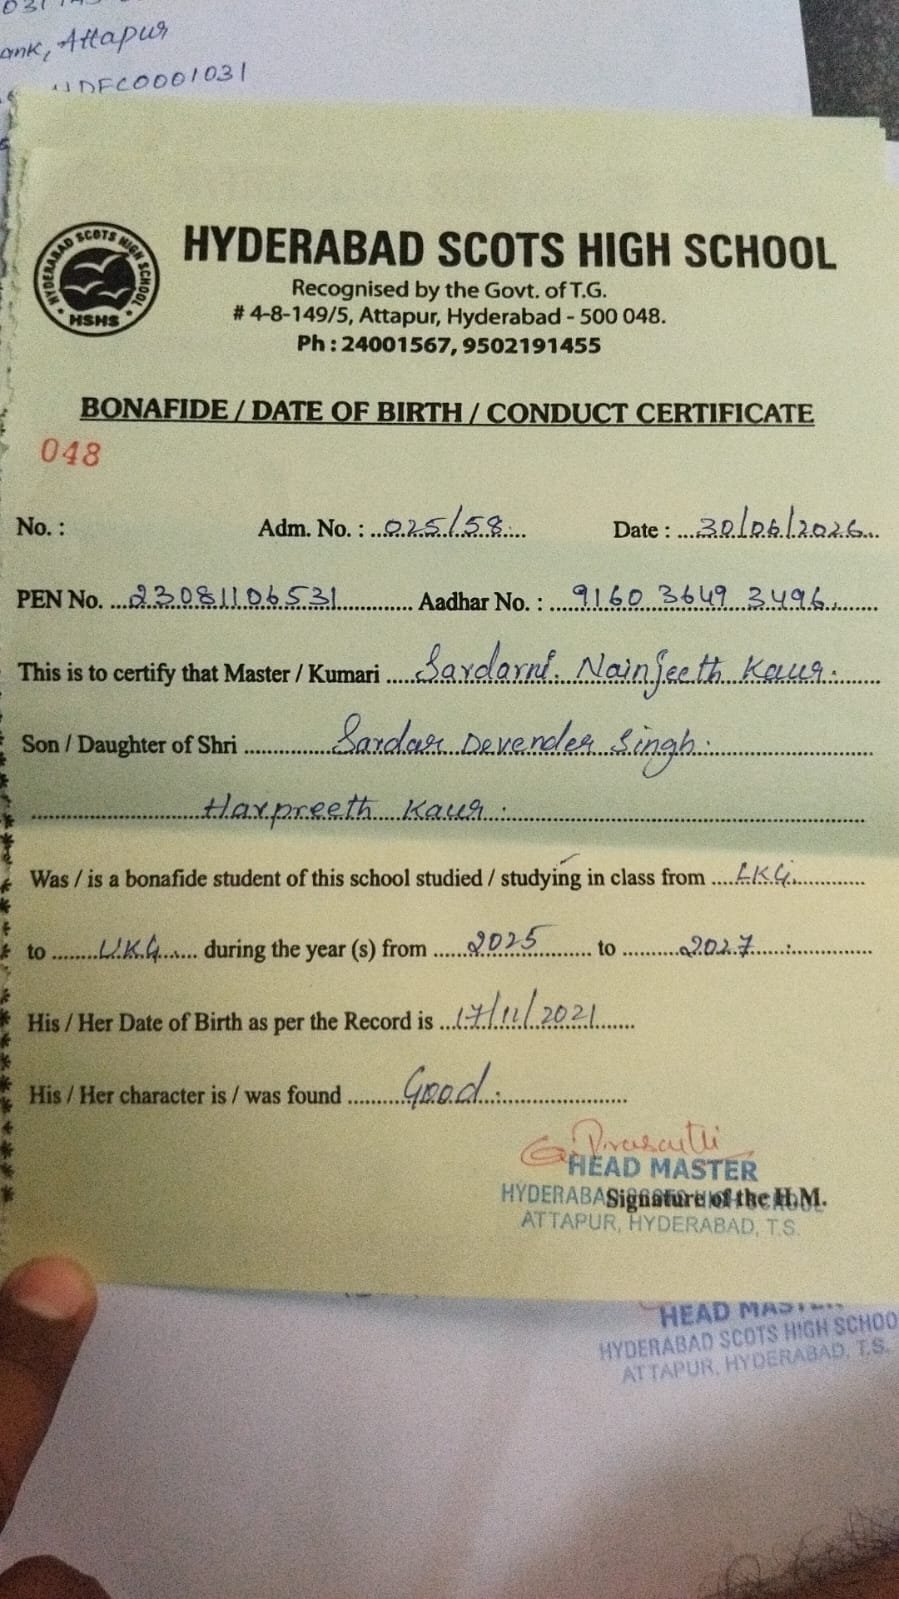 ank, Attapur
HDFC0001031
HYDERABAD SCOTS HIGH SCHOOL
HSHS
HYDERABAD SCOTS HIGH SCHOOL
Recognised by the Govt. of T.G.
# 4-8-149/5, Attapur, Hyderabad - 500 048.
Ph : 24001567, 9502191455
BONAFIDE / DATE OF BIRTH / CONDUCT CERTIFICATE
048
No. : Adm. No. : 025/58 Date : 30/06/2026
PEN No. 23081106531 Aadhar No. : 9160 3649 3496
This is to certify that Master / Kumari Sardarni. Nainjeeth Kaur.
Son / Daughter of Shri Sardar Devender Singh.
Harpreeth Kaur.
Was / is a bonafide student of this school studied / studying in class from LKG
to UKG during the year (s) from 2025 to 2027
His / Her Date of Birth as per the Record is 17/11/2021
His / Her character is / was found Good.
HEAD MASTER
HYDERABAD SCOTS HIGH SCHOOL
Signature of the H.M.
ATTAPUR, HYDERABAD, T.S.
HEAD MASTER
HYDERABAD SCOTS HIGH SCHOO
ATTAPUR, HYDERABAD, T.S.